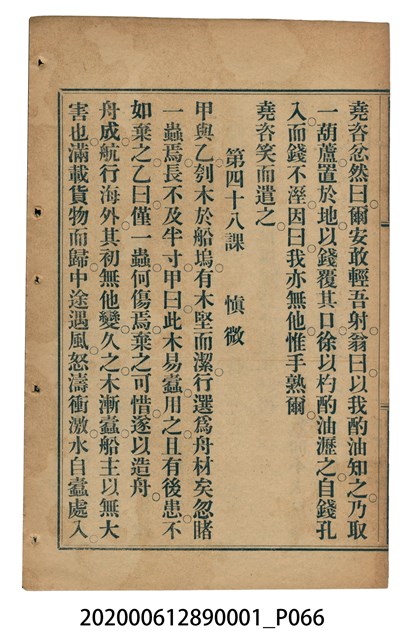 堯咨忿然曰。爾安敢輕吾射。翁曰。以我酌油知之。乃取
一葫蘆置於地。以錢覆其口。徐以杓酌油瀝之。自錢孔
入而錢不溼。因曰。我亦無他。惟手熟爾。
堯咨笑而遣之。
第四十八課　愼微
甲與乙刳木於船塢。有木堅而潔。行選爲舟材矣。忽睹
一蟲焉。長不及半寸。甲曰。此木易蠹。用之且有後患。不
如棄之。乙曰。僅一蟲何傷焉。棄之可惜。遂以造舟。
舟成。航行海外。其初無他變。久之木漸蠹。船主以無大
害也。滿載貨物而歸。中途遇風。怒濤衝激。水自蠹處入
202000612890001_P066